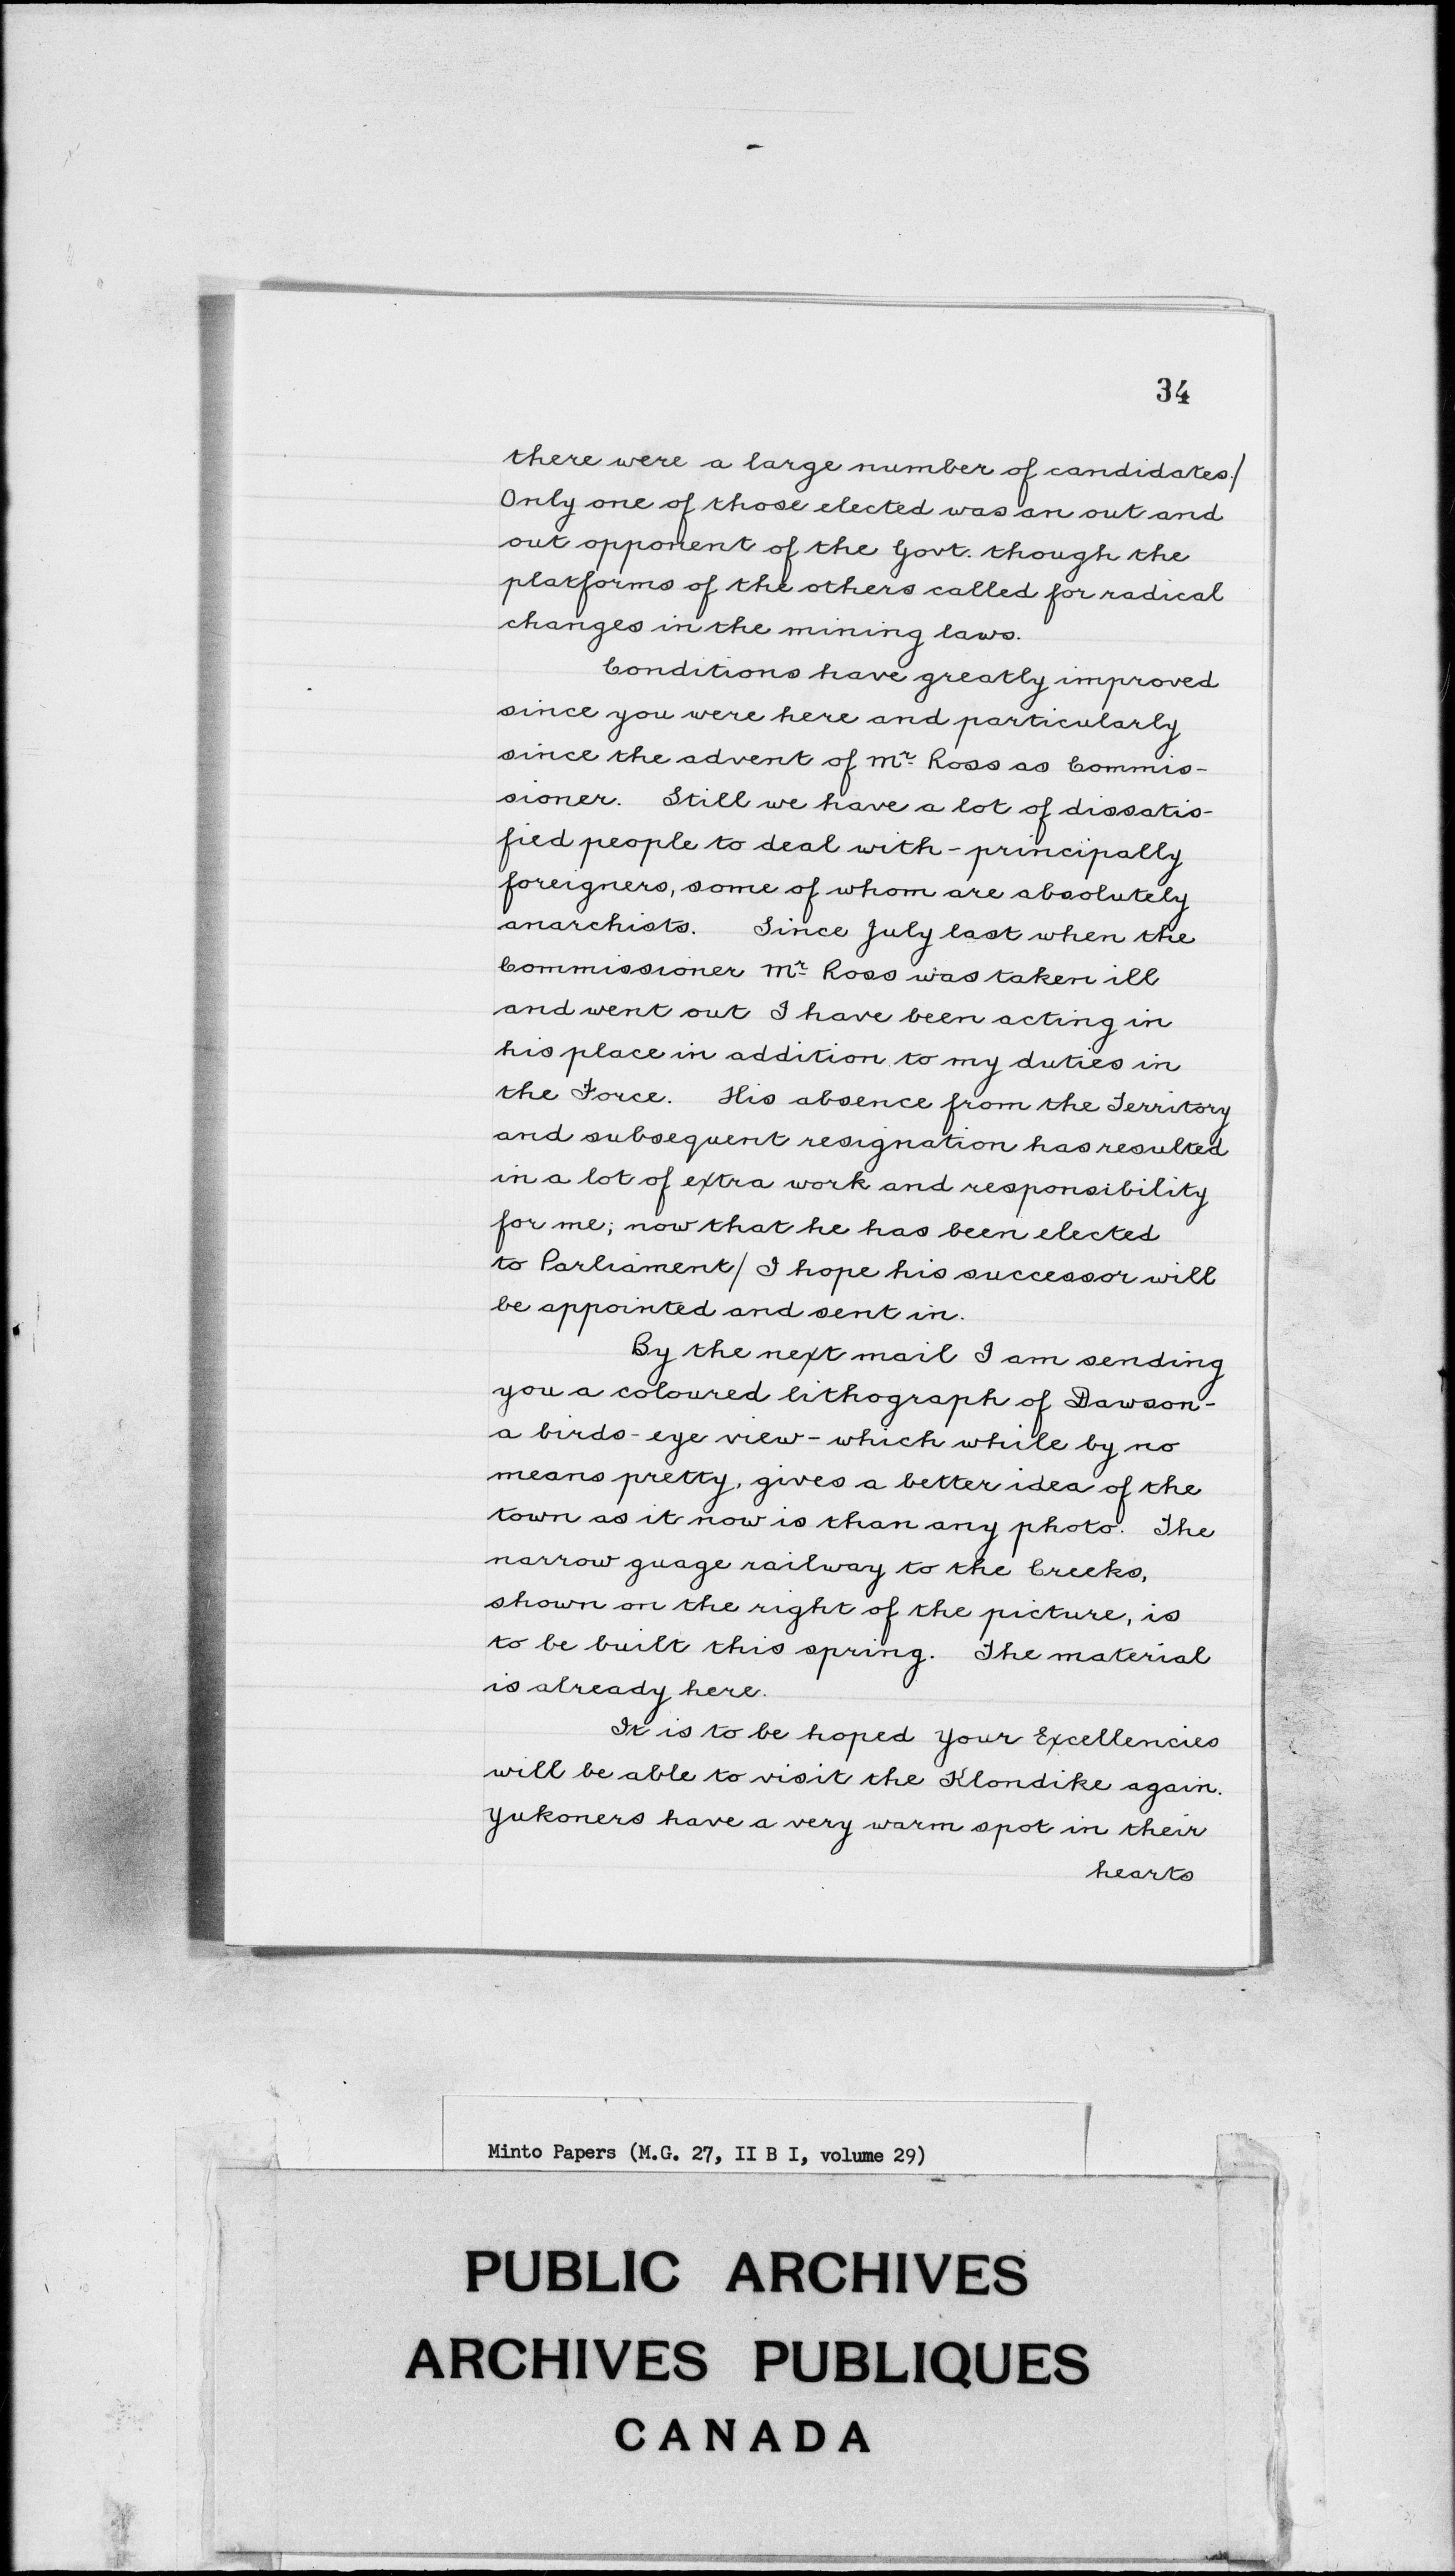 34
there were a large number of candidates./
Only one of those elected was an out and
out opponent of the Govt. though the
platforms of the others called for radical
changes in the mining laws.
Conditions have greatly improved
since you were here and particularly
since the advent of Mr. Ross as Commis-
sioner. Still we have a lot of dissatis-
fied people to deal with - principally
foreigners, some of whom are absolutely
anarchists. Since July last when the
Commissioner Mr. Ross was taken ill
and went out I have been acting in
his place in addition to my duties in
the Force. His absence from the Territory
and subsequent resignation has resulted
in a lot of extra work and responsibility
for me; now that he has been elected
to Parliament/ I hope his successor will
be appointed and sent in.
By the next mail I am sending
you a coloured lithograph of Dawson -
a birds-eye view - which while by no
means pretty, gives a better idea of the
town as it now is than any photo. The
narrow guage railway to the Creeks,
shown on the right of the picture, is
to be built this spring. The material
is already here.
It is to be hoped Your Excellencies
will be able to visit the Klondike again.
Yukoners have a very warm spot in their
hearts
Minto Papers (M.G. 27, II B I, volume 29)
PUBLIC ARCHIVES
ARCHIVES PUBLIQUES
CANADA